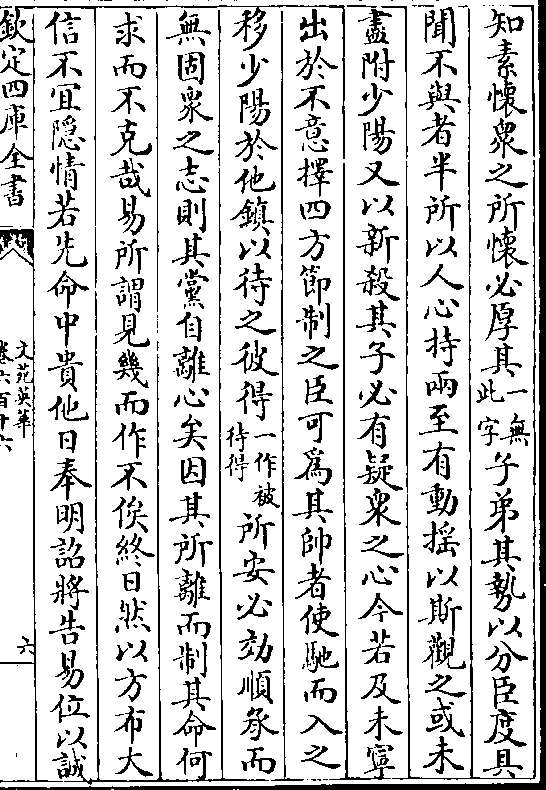 知素懷衆之所懷必厚其一無此字子弟其勢以分臣度其
聞不與者半所以人心持兩至有動揺以斯觀之或未
盡附少陽又以新殺其子必有疑衆之心今若及未寧
出於不意擇四方節制之臣可為其帥者使馳而入之
移少陽於他鎮以待之彼得一作被待得所安必効順承而
無固衆之志則其黨自離心矣因其所離而制其命何
求而不克哉易所謂見幾而作不俟終日然以方布大
信不冝隠情若先命中貴他日奉明詔將告易位以誠
欽定四庫全書
文苑英華
卷六百十六
六